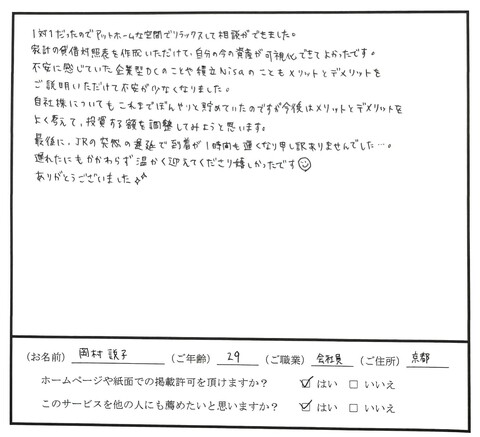 1対1だったのでアットホームな空間でリラックスして相談ができました。
家計の貸借対照表を作成いただけて、自分の今の資産が可視化できてよかったです。
不安に感じていた企業型DCのことや積立Nisaのこともメリットとデメリットを
ご説明いただけて不安が少なくなりました。
自社株についてもこれまでぼんやりと貯めていたのですが今後はメリットとデメリットを
よく考えて、投資する額を調整してみようと思います。
最後に、JRの突然の遅延で到着が1時間も遅くなり申し訳ありませんでした…。
遅れたにもかかわらず温かく迎えてくださり嬉しかったです
ありがとうございました
(お名前) 岡村 説子 (ご年齢) 29 (ご職業) 会社員 (ご住所) 京都
ホームページや紙面での掲載許可を頂けますか? ☑ はい □ いいえ
このサービスを他の人にも薦めたいと思いますか? ☑ はい □ いいえ